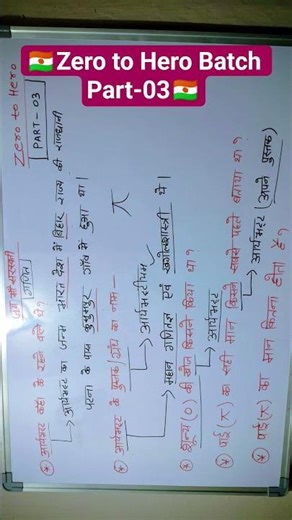 🇳🇪Zero to Hero Batch
Part-03🇳🇪
Zero to Hero
PART - 03
जय माँ सरस्वती
गणित
* आर्यभट्ट कहाँ के रहने वाले थे?
→ आर्यभट्ट का जन्म भारत देश में बिहार राज्य की राजधानी
पटना के पास कुसुमपुर गाँव में हुआ था।
* आर्यभट्ट के पुस्तक/ग्रंथ का नाम -
→ आर्यभट्टीयम
→ महान गणितज्ञ एवं खगोलशास्त्री थे।
* शून्य (0) की खोज किसने किया था?
→ आर्यभट्ट
* पाई (π) का सही मान किसने सबसे पहले बताया था?
→ आर्यभट्ट (अपने पुस्तक)
* पाई (π) का मान कितना होता है?
π